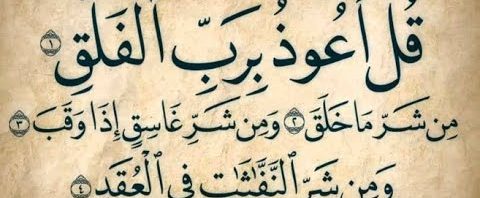 قُلْ أَعُوذُ بِرَبِّ الْفَلَقِ ١
مِن شَرِّ مَا خَلَقَ ٢ وَمِن شَرِّ غَاسِقٍ إِذَا وَقَبَ ٣
وَمِن شَرِّ النَّفَّاثَاتِ فِي الْعُقَدِ ٤